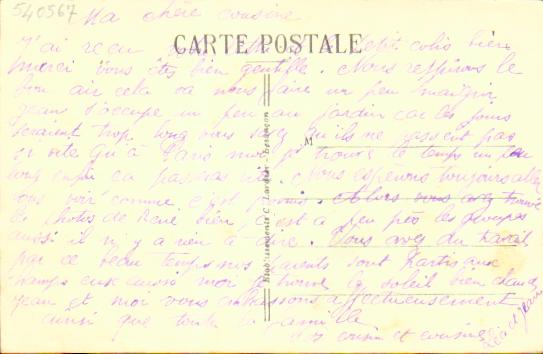 540567
Ma chère cousine
J'ai reçu petit colis bien
CARTE POSTALE
merci vous êtes bien gentille. Nous respirons le
bon air cela va nous faire un peu maigrir
jean s'occupe un peu au jardin car les jours
seraient trop long vous savez qu'ils ne passent pas
M
si vite qu'à Paris moi je trouve le temps un peu
long enfin ça passera Nous espérons toujours aller
vous voir comme c'est promis. Alors vous avez trouvé
les photos de René bien est à peu près les
aussi il n'y a rien à dire. Vous avez du travail
par ce beau temps nos parents sont partis aux
champs eux aussi moi je trouve le soleil bien chaud
jean et moi vous embrassons affectueusement
ainsi que toute la famille
vos cousin et cousine
et jean
Etablissements C. Lardier - Besançon